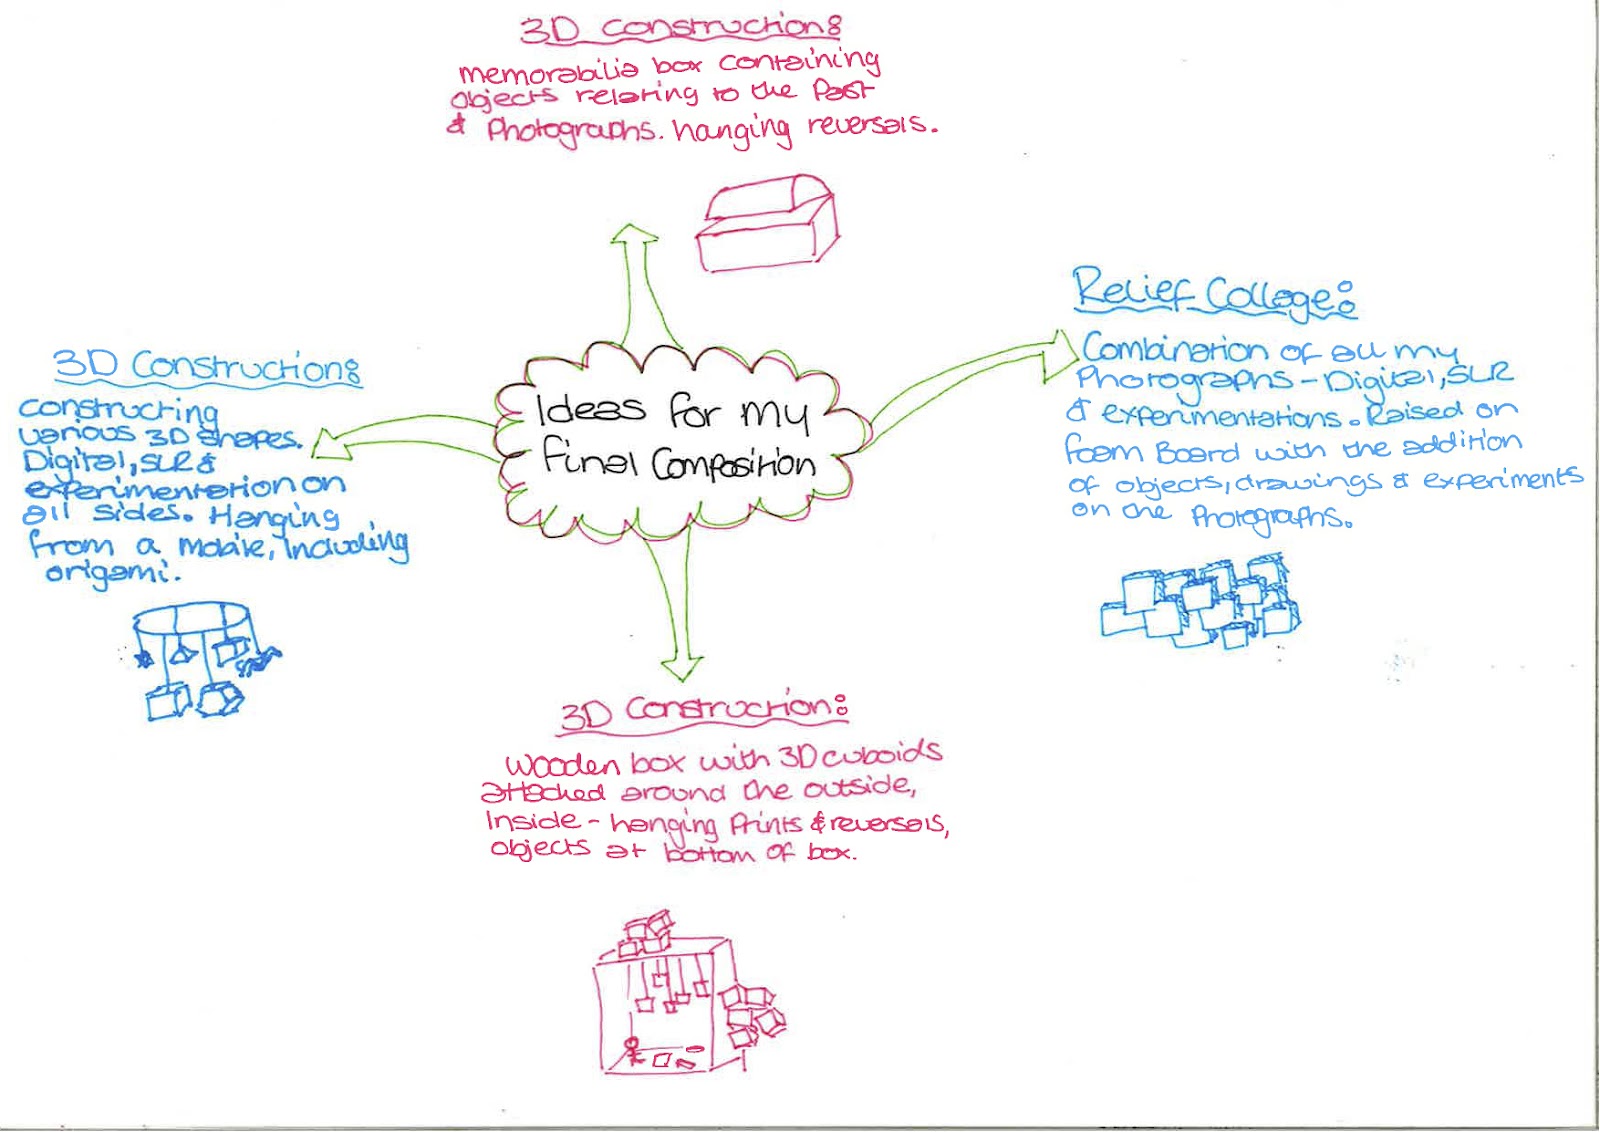 3D Construction:
memorabilia box containing
objects relating to the Past
& Photographs. hanging reversals.
Relief Collage:
Combination of all my
Photographs - Digital, SLR
& experimentations. Raised on
foam Board with the addition
of objects, drawings & experiments
on the Photographs.
3D Construction:
constructing
various 3D shapes.
Digital, SLR &
experimentation on
all sides. Hanging
from a mobile, including
origami.
Ideas for my
final Composition
3D Construction:
wooden box with 3D cuboids
attached around the outside,
Inside - hanging Prints & reversals,
objects at bottom of box.